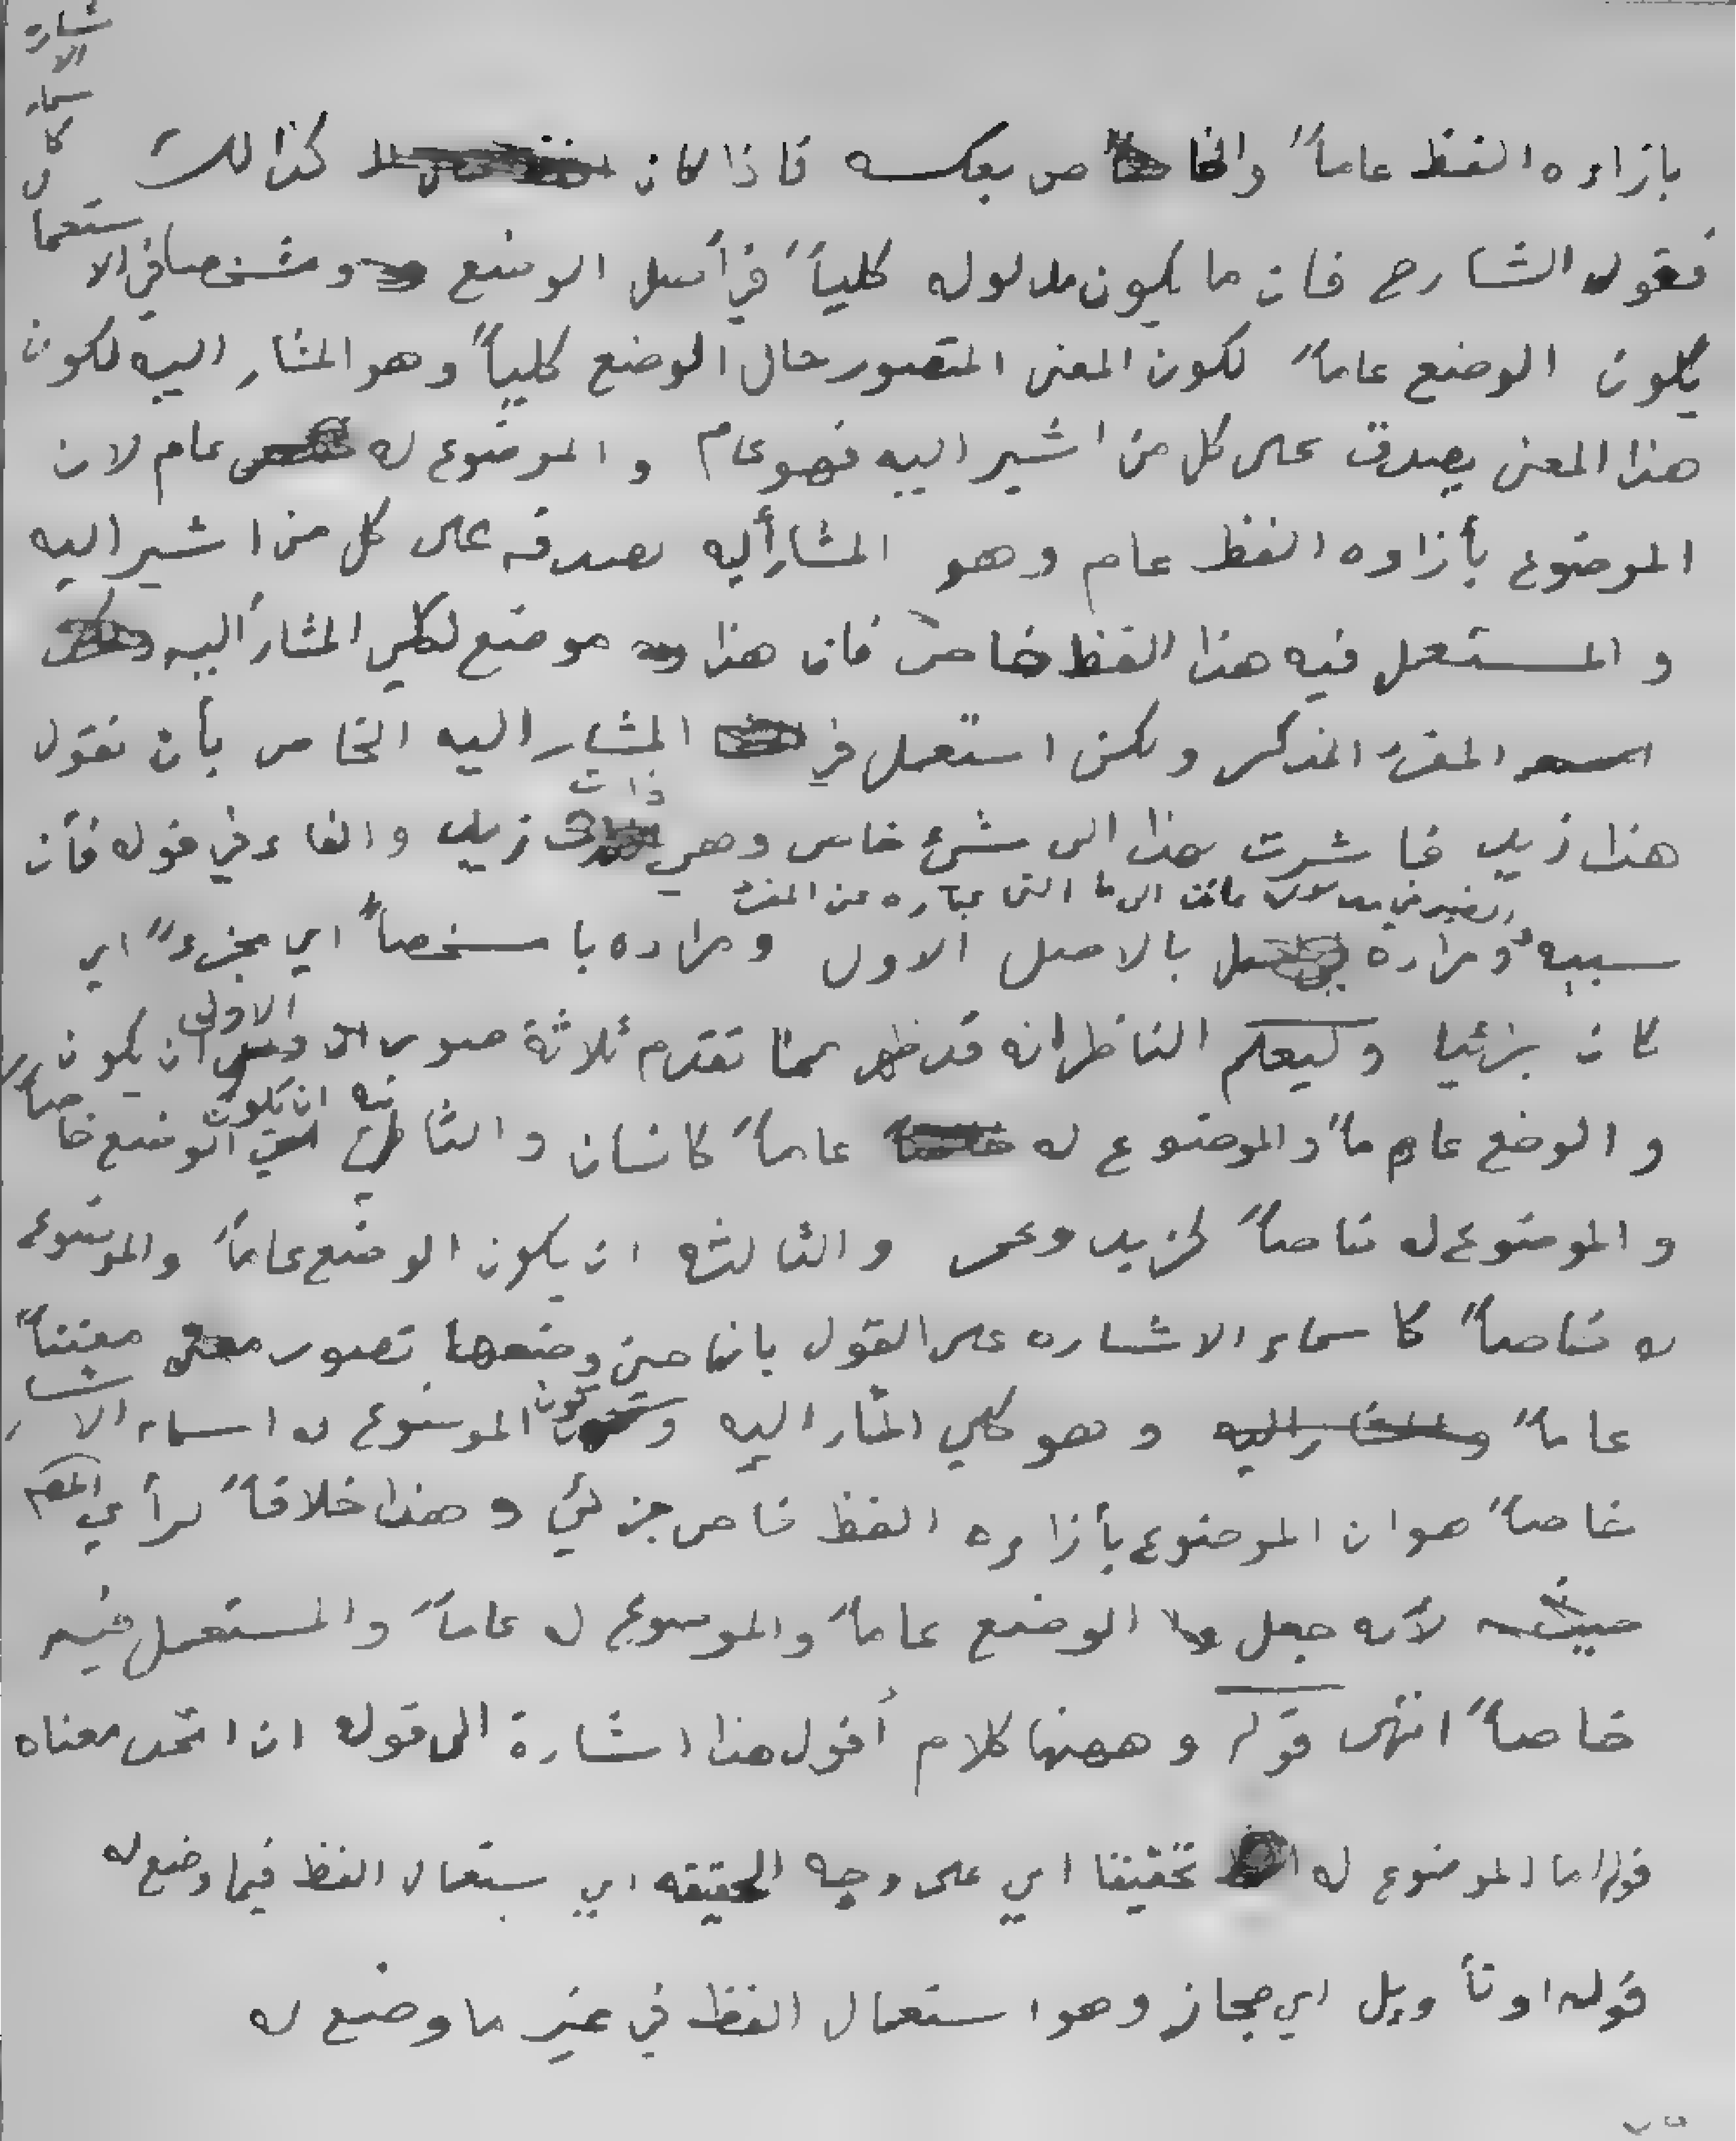 بازاءه اللفظ عاماً والخاص بعكسه فاذا كان كذالك
فقول الشارح فان ما يكون مدلوله كلياً في أصل الوضع ومشخصا في الاستعمال
كاسماء الاشارة
يكون الوضع عاماً لكون المعنى المتصور حال الوضع كلياً وهو المشار اليه لكون
هذا المعنى يصدق على كل من اشير اليه فهو عام و الموضوع له عام لان
الموضوع بأزاءه اللفظ عام وهو المشار أليه لصدقه على كل من اشير اليه
و المستعمل فيه هذا اللفظ خاص فان هذا موضع لكلي المشار أليه
المفرد المذكر ولكن استعمل في المشار اليه الخاص بأن نقول
هذا زيد فاشرت بهذا الى شئ خاص وهي ذات زيد والفاء في قوله فأن
الضمير في مدلوله عائد الى ما التي عباره عن المفرد
سببيه ومراده بالاصل الاول ومراده با مشخصاً اي مجزءً اي
كان جزئيا وليعلم الناظر انه قد ظهر مما تقدم ثلاثة صور الاولى ان يكون
و الوضع عاماً والموضوع له عاماً كانسان و الثانيه ان يكون الوضع خاصاً
و الموضوع له خاصاً كزيد وعمر و الثالثه ان يكون الوضع عاماً والموضوع
له خاصاً كاسماء الاشاره على القول بان حين وضعها تصور معنىً
عاماً وهو كلي المشار اليه وتكون الموضوع له اسماء الاشار
خاصاً هو ان الموضوع بأزاءه اللفظ خاص جزئي و هذا خلافاً لرأي المصم
حيث لأنه جعل الوضع عاماً والموضوع له عاماً والمستعمل فيه
خاصاً انتهى قوله وههنا كلام أقول هذا اشارة الى قوله ان اتحد معناه
قوله اما الموضوع له تحقيقا اي على وجه الحقيقه اي ستعمال اللفظ فيما وضع له
قوله او تأويل اي مجاز وهو استعمال اللفظ في غير ما وضع له